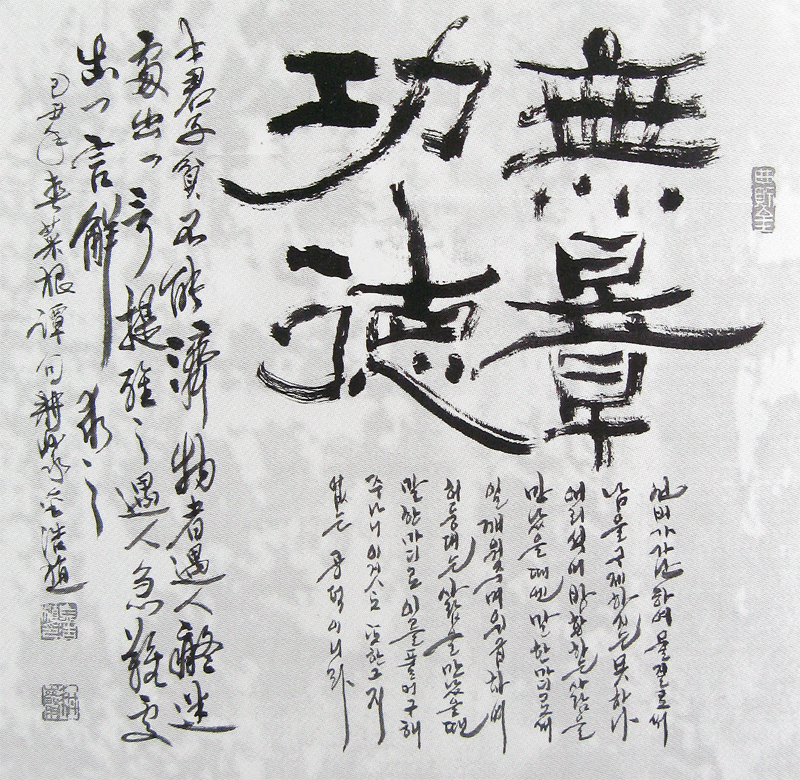 無量
功德
선비가 가난하여 물질로써
남을 구제하지는 못하나
어리석어 방황하는 사람을
만났을 때엔 말 한마디로써
일깨워주며 위급하여
허둥대는 사람을 만났을 땐
말 한마디로 이를 풀어 구해
주나니 이것도 또한 그지
없는 공덕이니라
士君子貧不能濟物者遇人癡迷
處出一言提醒之遇人急難處
出一言解救之
己丑年春菜根譚句